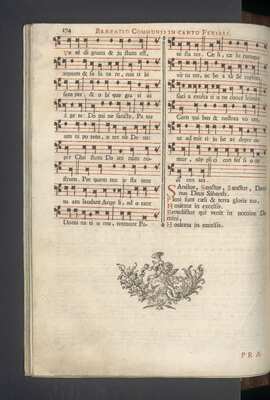 174 PRÆFATIO COMMUNIS IN CANTO FERIALE.
re di gnum & ju stum est,
æquum & sa lu ta re, nos ti bi
sem per, & u bi que gra ti as
a ge re: Do mi ne sancte, Pa ter
om ni po tens, æ ter ne De us:
per Chri stum Do mi num no-
strum. Per quem ma je sta tem
tu am laudant Ange li, ad o rant
Domi na ti o nes, tremunt Po-
te sta tes. Cæ li, cæ lo rumque
vir tu tes, ac be a ta Se raphim,
soci a exulta ti o ne concelebrant.
Cum qui bus & nostras vo ces,
ut ad mit ti ju be as depre ca-
mur, supplici con fes si o ne
di cen tes.
Sanctus, Sanctus, Sanctus, Domi-
nus Deus Sabaoth.
Pleni sunt cæli & terra gloria tua,
Hosanna in excelsis.
Benedictus qui venit in nomine Do-
mini,
Hosanna in excelsis.